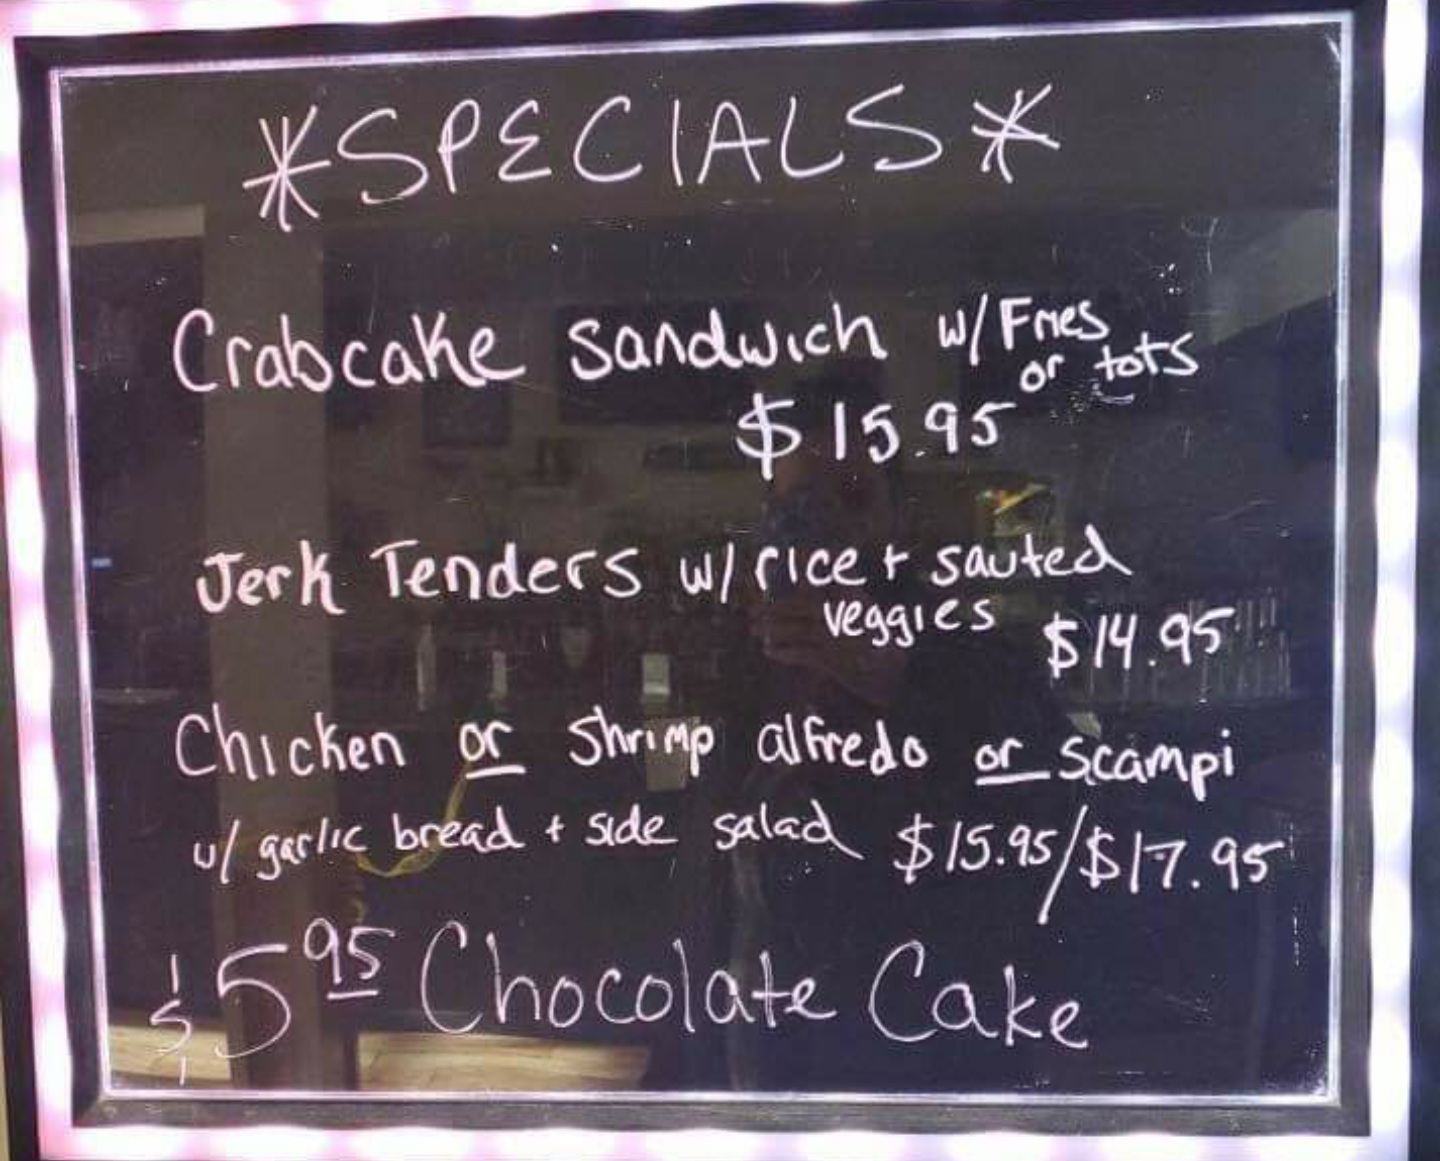 *SPECIALS*
Crabcake Sandwich w/Fries
or tots
$15.95
Jerk Tenders w/rice + sauted
veggies
$14.95
Chicken or Shrimp alfredo or scampi
w/ garlic bread + side salad $15.95/$17.95
$5.95 Chocolate Cake